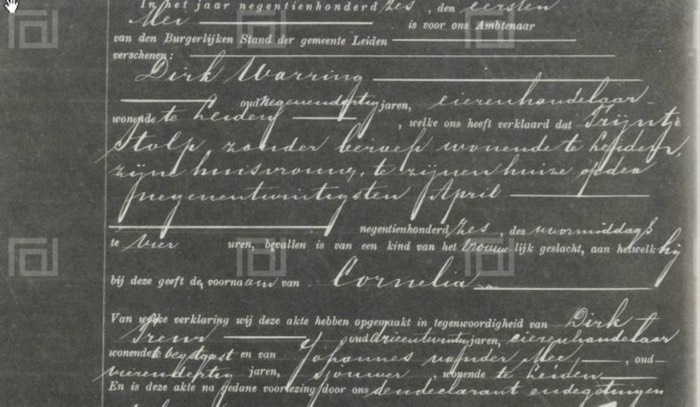 In het jaar negentienhonderd zes, den eersten
Mei is voor ons Ambtenaar
van den Burgerlijken Stand der gemeente Leiden
verschenen:
Dirk Warring
oud negenendertig jaren, eierenhandelaar
wonende te Leiden, welke ons heeft verklaard dat Trijntje
Stolp, zonder beroep wonende te Leiden,
zijne huisvrouw, te zijnen huize op den
negenentwintigsten April
negentienhonderd zes, des voormiddags
te vier uren, bevallen is van een kind van het vrouwelijk geslacht, aan hetwelk hij
bij deze geeft de voornaam van Cornelia
Van welke verklaring wij deze akte hebben opgemaakt in tegenwoordigheid van Dirk
oud drieentwintig jaren, eierenhandelaar
wonende te Oegstgeest en van Johannes van der Mee, oud
vierendertig jaren, sjouwer, wonende te Leiden
En is deze akte na gedane voorlezing door ons den declarant en de getuigen